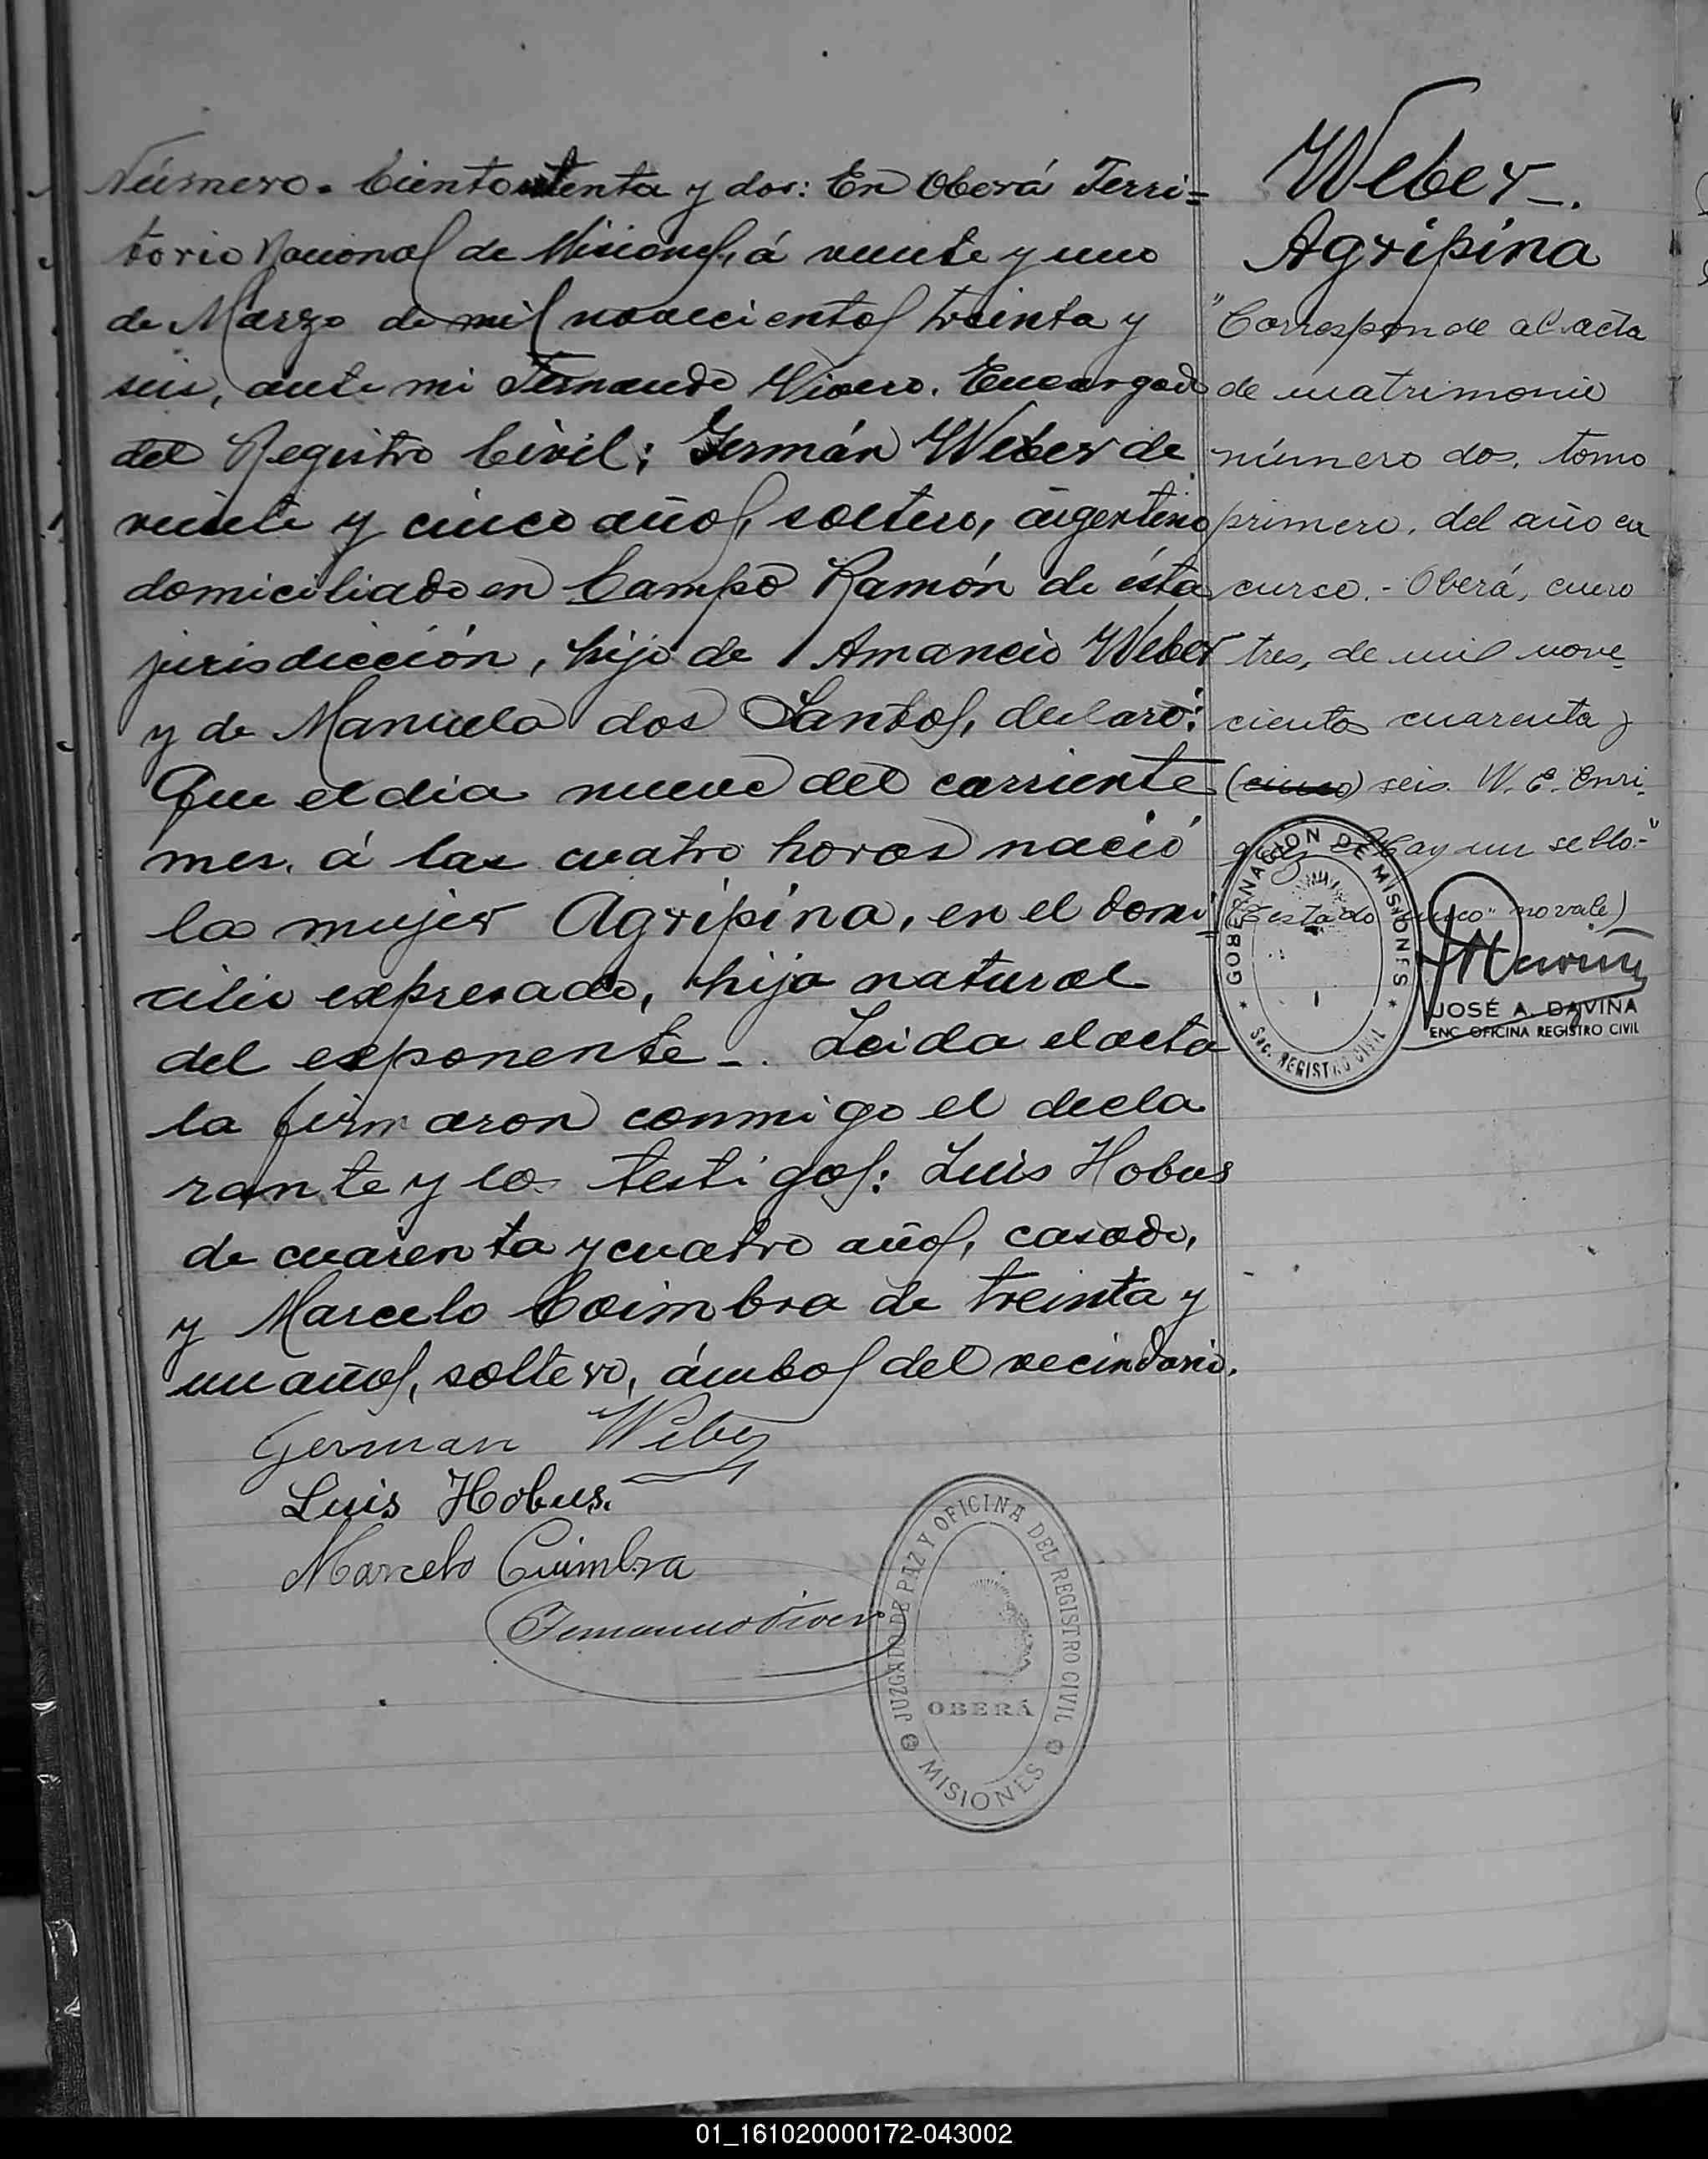 Número. Ciento setenta y dos: En Oberá Terri=
torio Nacional de Misiones, á veinte y uno
de Marzo de mil novecientos treinta y
seis, ante mi Fernando Vivero. Encargado
del Registro Civil; Germán Weber de
veinte y cinco años, soltero, argentino
domiciliado en Campo Ramón de ésta
jurisdicción, hijo de Amancio Weber
y de Manuela dos Santos, declaró:
Que el dia nueve del corriente
mes, á las cuatro horas nació
la mujer Agripina, en el domi=
cilio expresado, hija natural
del exponente -. Leida el acta
la firmaron conmigo el decla
rante y los testigos: Luis Hobus
de cuarenta y cuatro años, casado,
y Marcelo Coimbra de treinta y
un años, soltero, ámbos del vecindario.
German Weber
Luis Hobus.
Marcelo Cuimbra
Fernando Vivero
JUZGADO DE PAZ Y OFICINA DEL REGISTRO CIVIL
OBERÁ
MISIONES
Weber-.
Agripina
"Corresponde al acta
de matrimonio
número dos, tomo
primero, del año en
curso.- Oberá, enero
tres, de mil nove
cientos cuarenta y
(cinco) seis. W. E. Enri
Hay un sello."
(Testado "cinco" no vale)
GOBERNACION DE MISIONES
SEC. REGISTRO CIVIL
JOSÉ A. DAVIÑA
ENC. OFICINA REGISTRO CIVIL
01_161020000172-043002